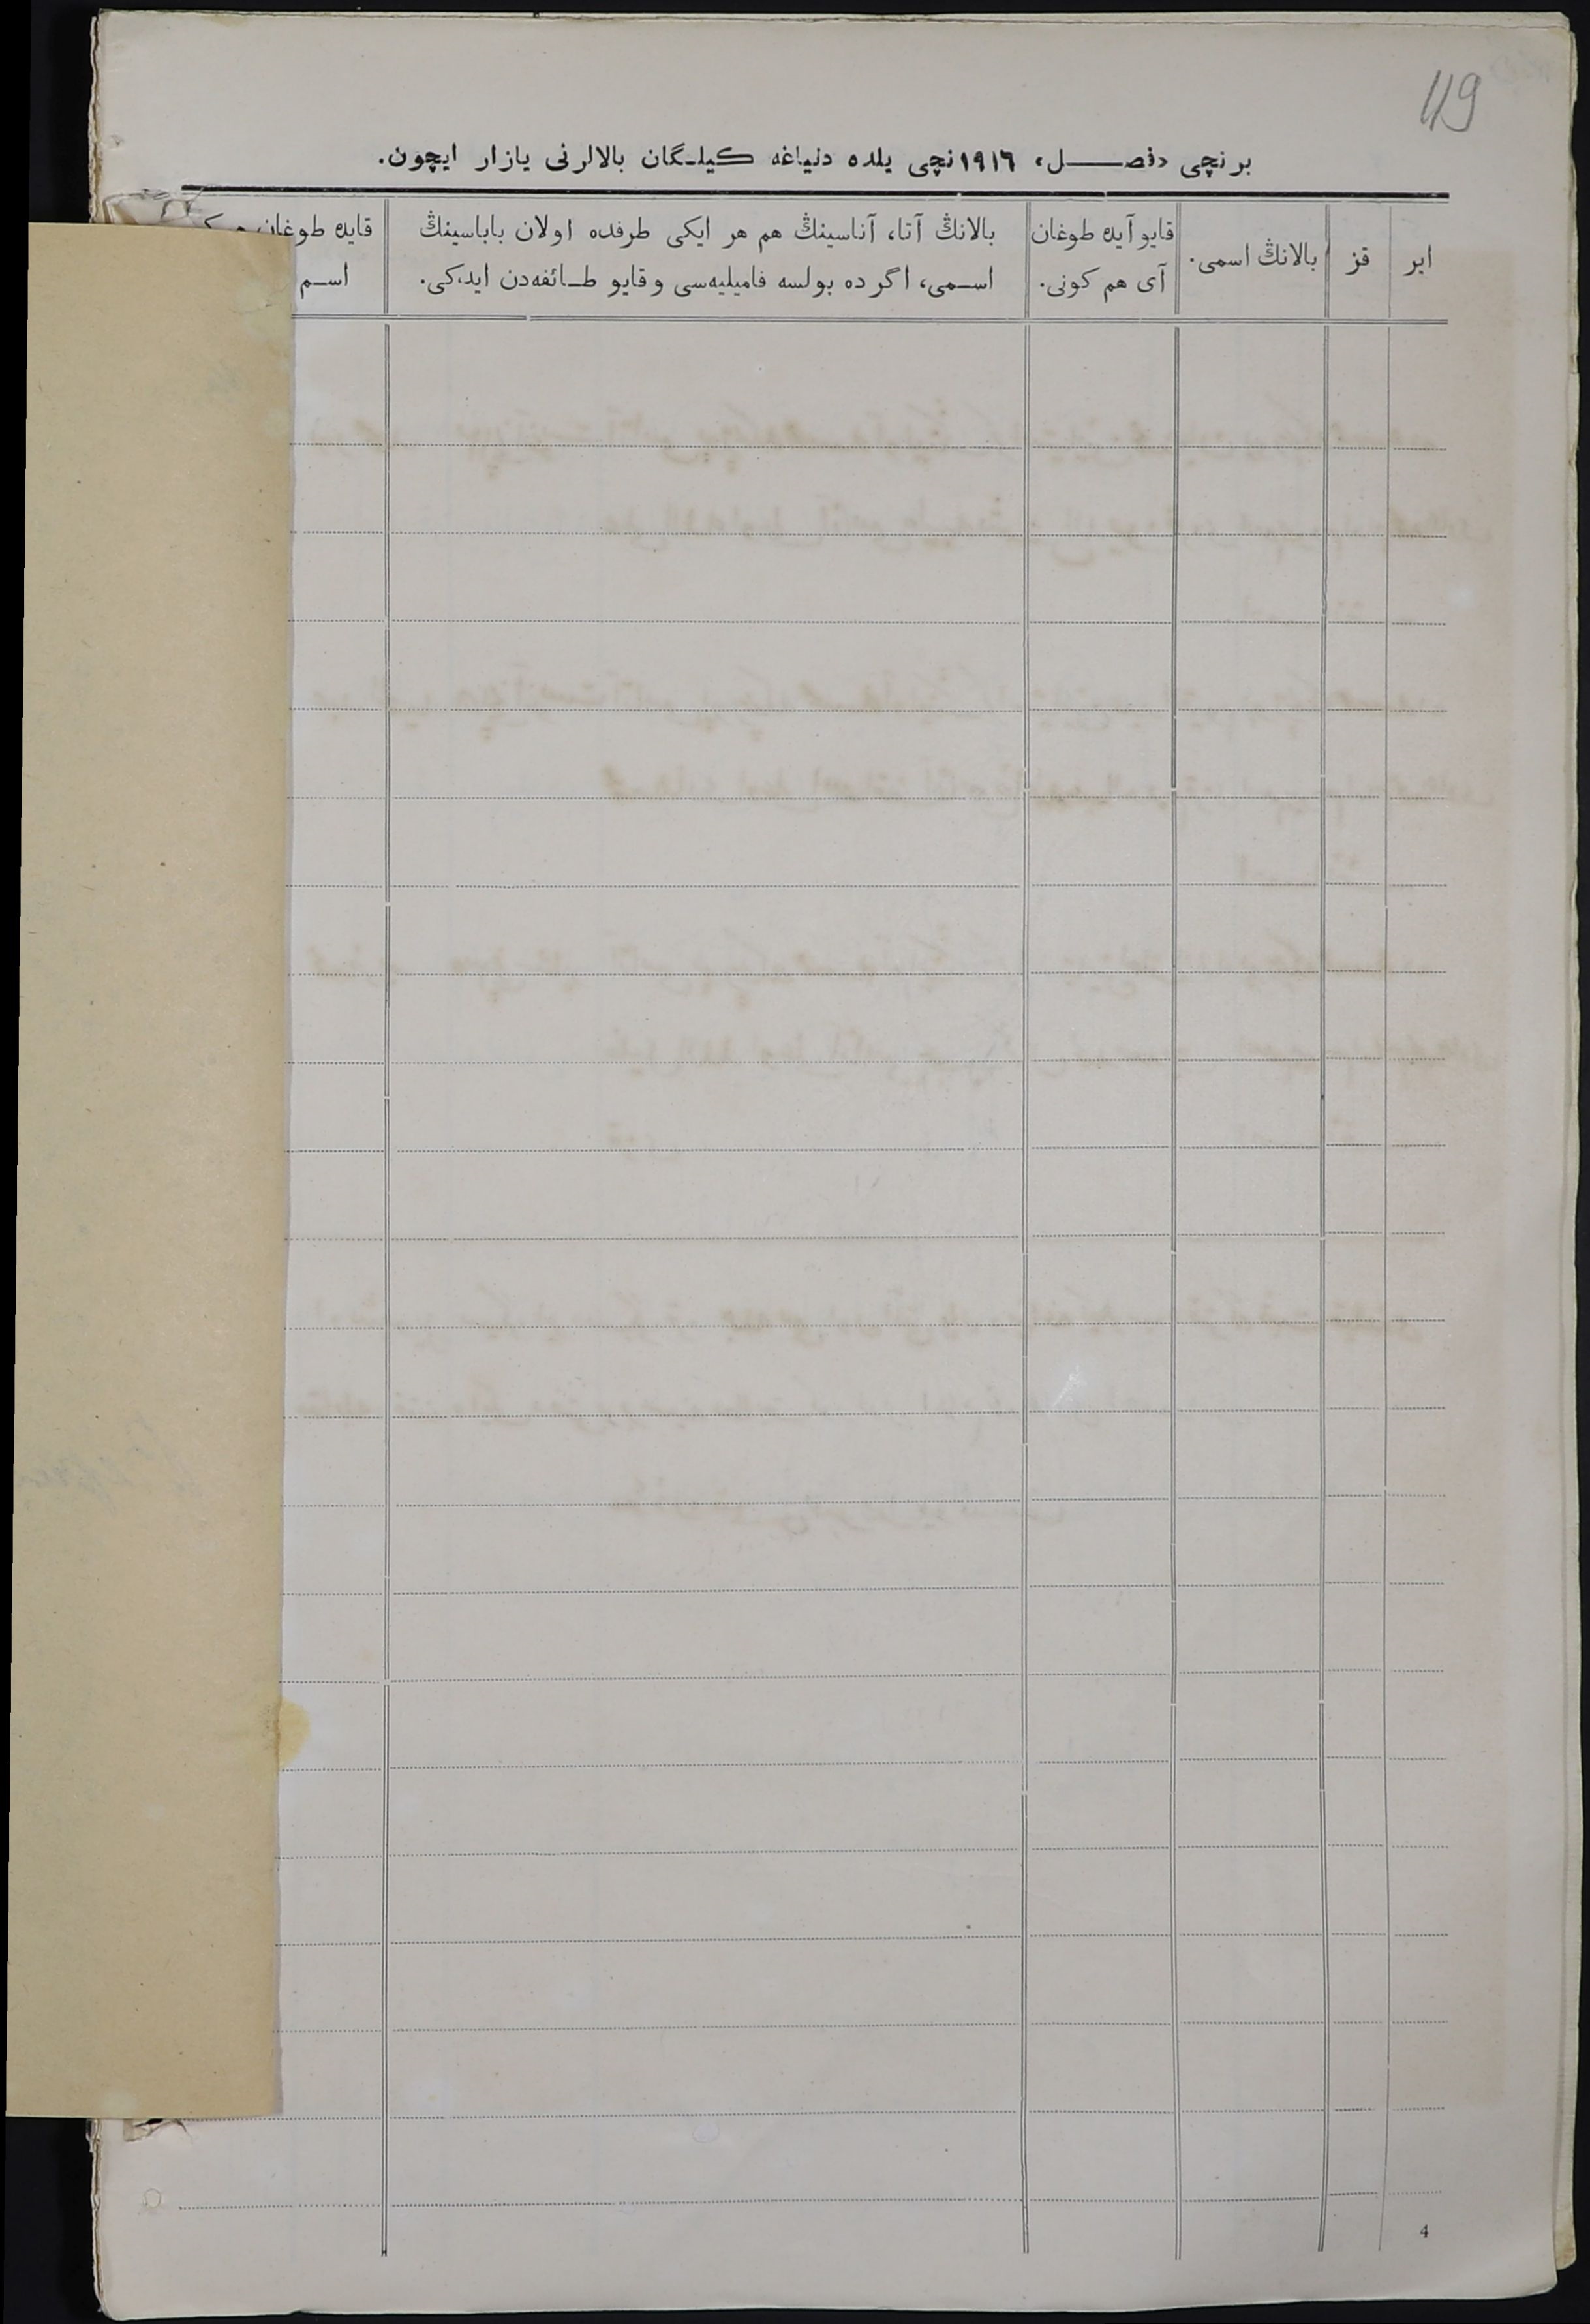 119
برنچی «فصــــل، ١٩١٦نچی یلده دنیاغه کیلـگان بالالرنی یازار ایچون.
ایر
قز
بالانڭ اسمی.
قایو آیده طوغان
آی هم کونی.
بالانڭ آتا، آناسینڭ هم هر ایکی طرفده اولان باباسینڭ
اسـمی، اگر ده بولسه فامیلیه‌سی و قایو طـائفه‌دن ایدکی.
قایده طوغان
اسـم
4